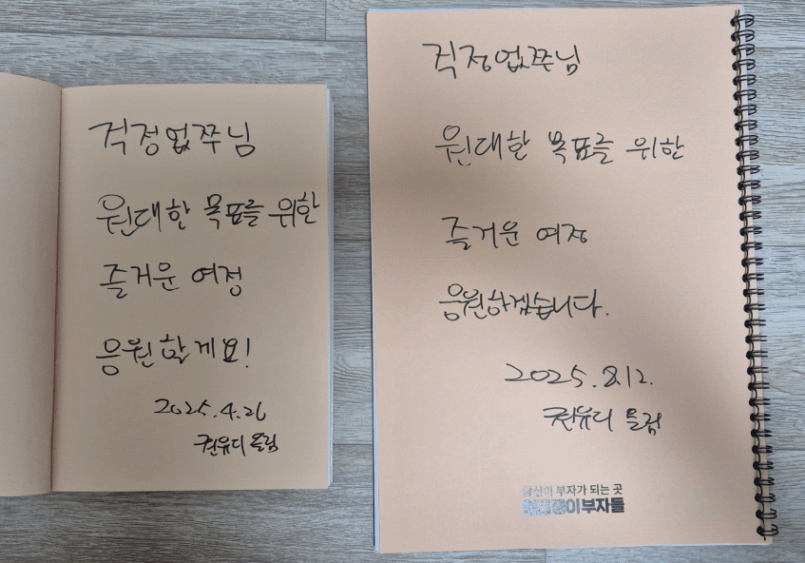 걱정없쭈님
원대한 목표를 위한
즐거운 여정
응원할게요!
2025.4.26
권유디 드림
걱정없쭈님
원대한 목표를 위한
즐거운 여정
응원하겠습니다.
2025.8.12.
권유디 드림
당신이 부자가 되는 곳
월급쟁이부자들